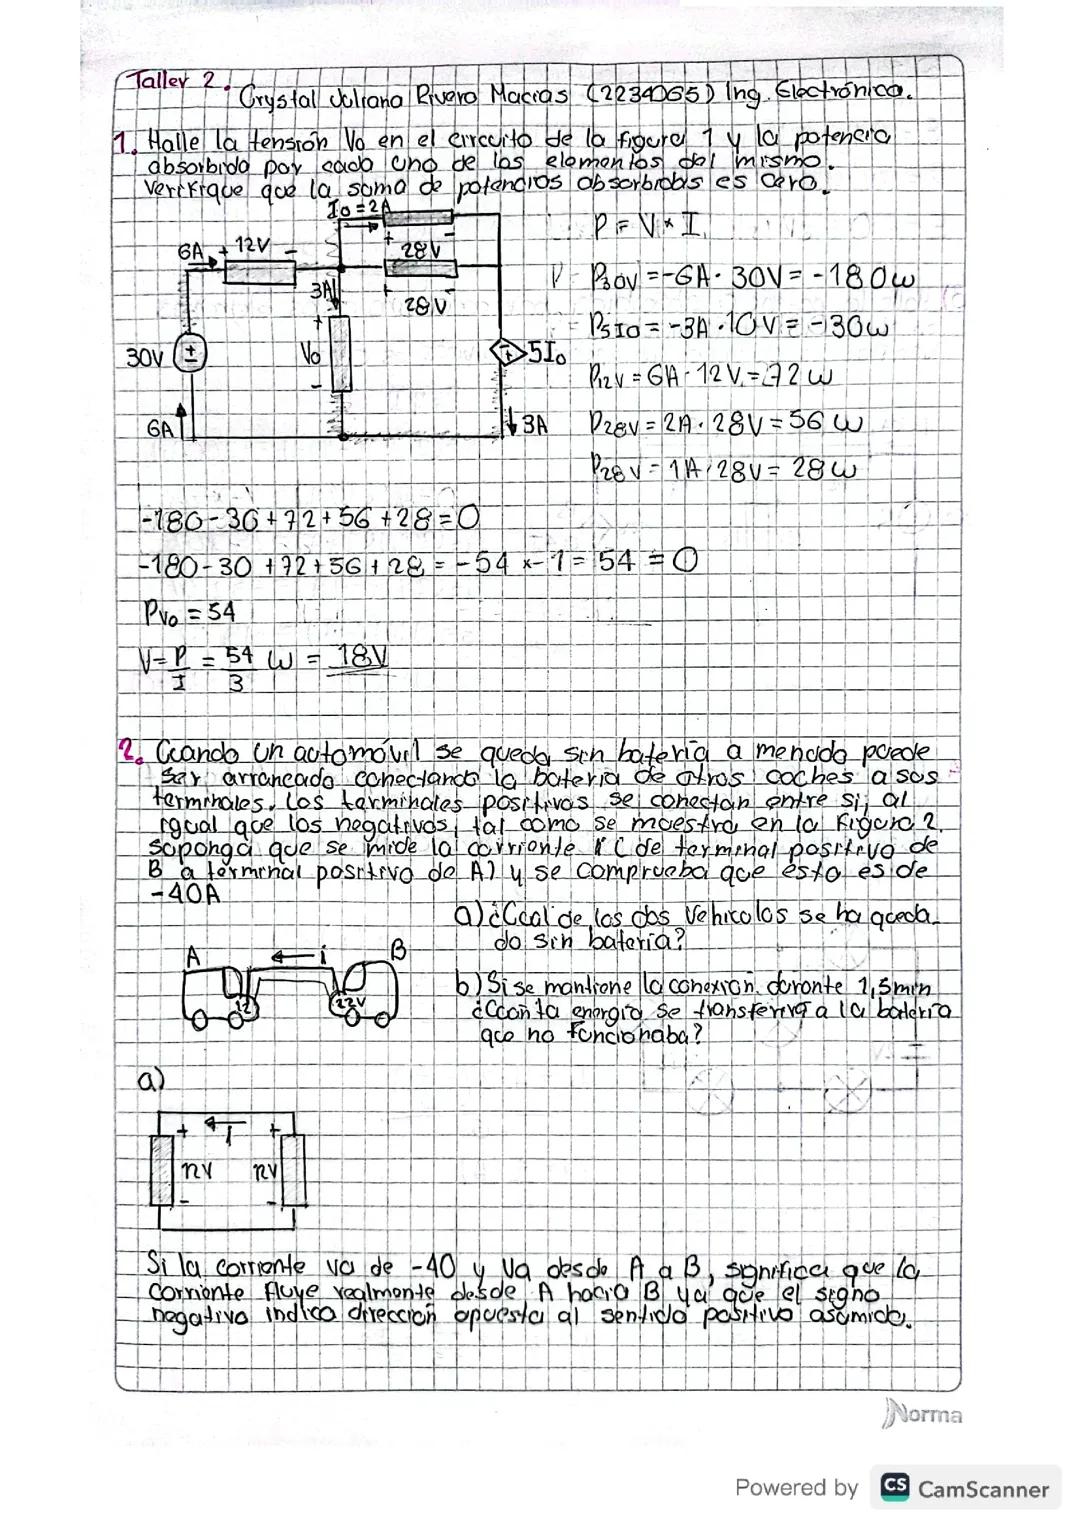 Taller 2.
Crystal Juliana Rivero Macias (2234065) Ing. Electrónica.
1. Halle la tensión Vo en el circuito de la figura 1 y la potencia
absorbida por cada uno de los elementos del mismo.
Verifique que la suma de potencias absorbidas es cero.
Io=2A
P = V * I
6A + 12V -
+ 28V -
P30V = -6A · 30V = -180w
3A
+ 28V -
P5Io = -3A · 10V = -30w
30V
+ Vo -
5Io
P12V = 6A · 12V = 72w
6A
3A
P28V = 2A · 28V = 56 w
P28V = 1A · 28V = 28w
-180-30+72+56+28=0
-180-30+72+56+28 = -54 x-1 = 54 = 0
PVo = 54
V = P/I = 54/3 w = 18V
2. Cuando un automóvil se queda sin batería a menudo puede
ser arrancado conectando la batería de otros coches a sus
terminales. Los terminales positivos se conectan entre si, al
igual que los negativos, tal como se muestra en la figura 2.
Suponga que se mide la corriente i (de terminal positivo de
B a terminal positivo de A) y se comprueba que esta es de
-40A
a) ¿Cual de los dos vehiculos se ha queda
do sin batería?
A
i
B
b) Si se mantiene la conexión durante 1,5min
12
12V
¿Cuánta energia se transferira a la batería
que no funcionaba?
a)
+ I +
12V 12V
- -
Si la corriente va de -40 y va desde A a B, significa que la
corriente fluye realmente desde A hacia B ya que el signo
negativo indica dirección opuesta al sentido positivo asumido.
Norma
Powered by CS CamScanner